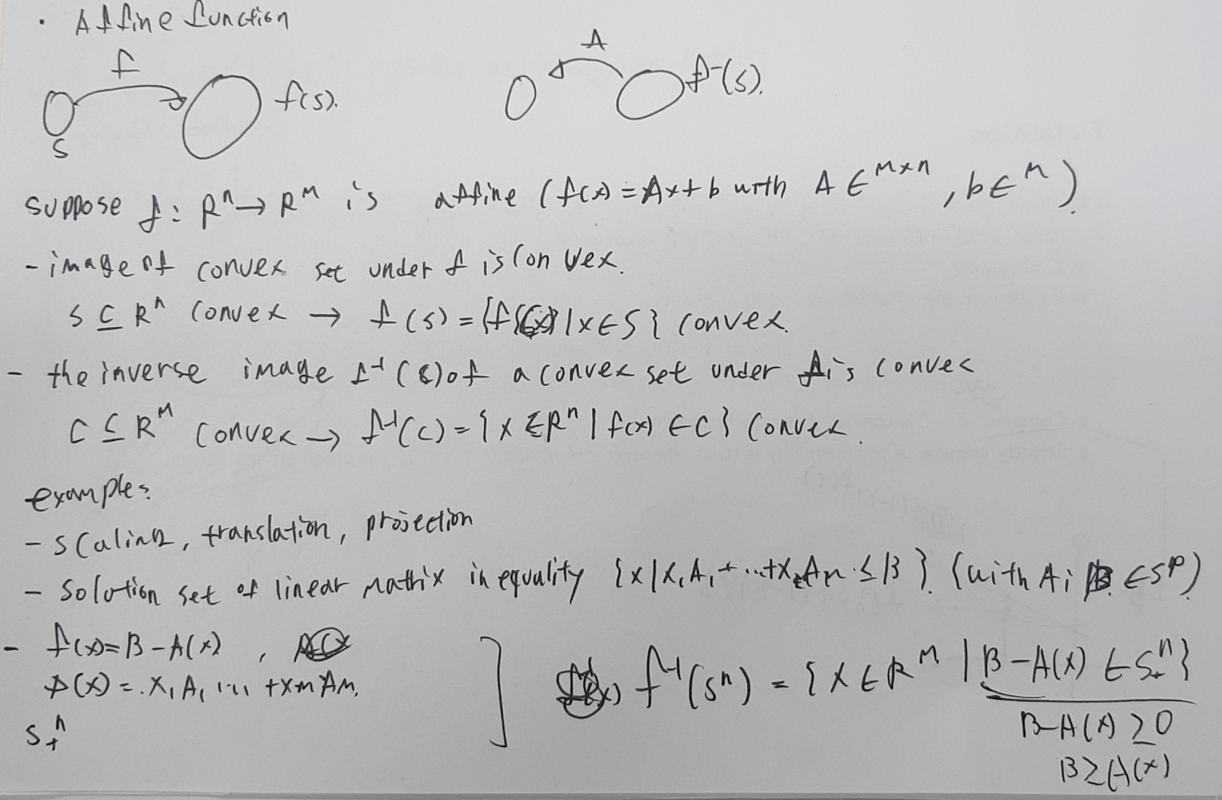 · Affine function
f
f(s).
s
A
f⁻(s).
suppose f: Rⁿ→Rᵐ is affine (f(x)=Ax+b with A ∈ᵐˣⁿ, b∈ᵐ).
- image of convex set under f is convex.
S ⊆ Rⁿ convex → f(s) = {f(x) | x∈S} convex.
- the inverse image f⁻¹(c) of a convex set under f is convex
C ⊆ Rᵐ convex → f⁻¹(c) = {x ∈Rⁿ | f(x) ∈C} convex.
examples
- scaling, translation, projection
- solution set of linear matrix inequality {x | x₁A₁+...+xₘAₘ ≤ B}. (with Ai B ∈Sᵖ)
- f(x)=B-A(x),
A(x) = x₁A₁ ... +xmAm.
S₊ⁿ
f⁻¹(sⁿ) = {x ∈ Rᵐ | B-A(x) ∈ S₊ⁿ}
B-A(x) ≥ 0
B≥A(x)